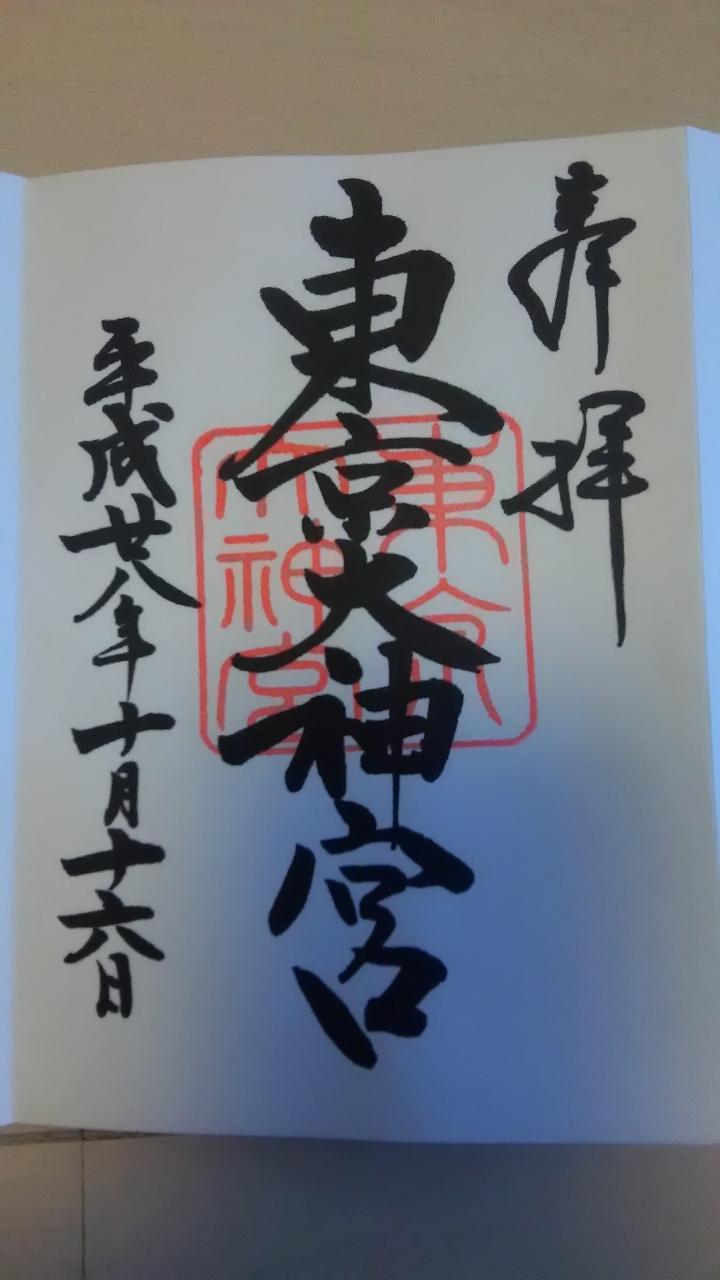 奉拝
東京大神宮
東京大神宮
平成廿八年十月十六日